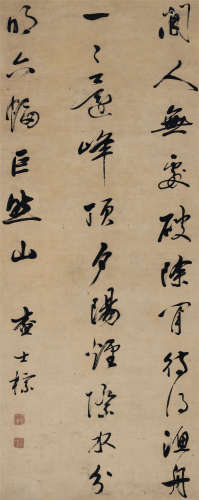 閒人無處破除閒待得漁舟
一〻還峰頂夕陽煙際水分
明六幅巨然山
查士標